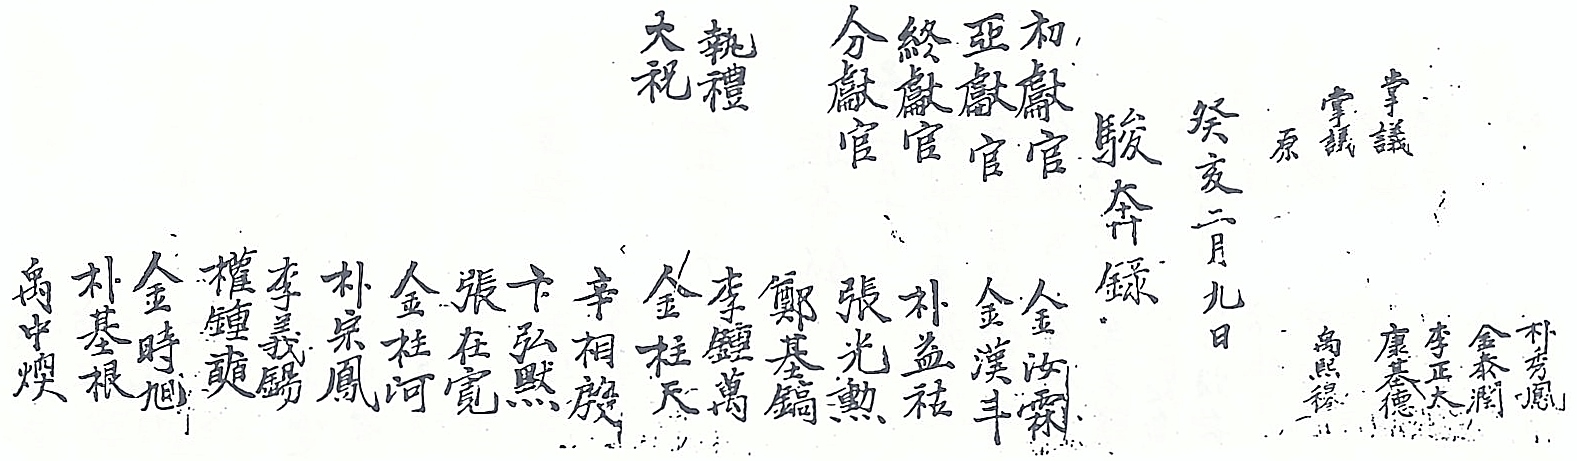 朴秀鳳
金泰潤
李正大
掌議 康基德
掌議
禹熙穆
原
癸亥二月九日
駿奔錄
初獻官 金汝霖
亞獻官 金漢斗
終獻官 朴益祜
分獻官 張光勳
鄭基鎬
執禮 李鍾萬
大祝 金柱天
辛相殷
卞弘默
張在寬
金柱河
朴宗鳳
李義錫
權鍾奭
金時旭
朴基根
禹中煥